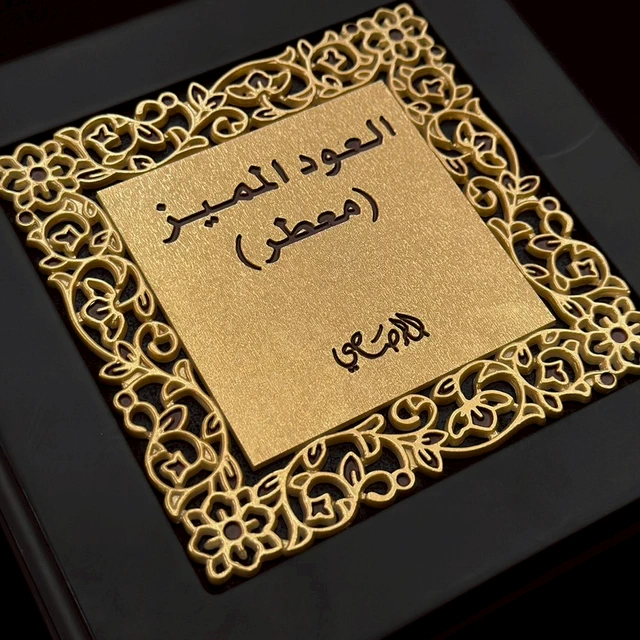 العود المميز
(معطر)
الرصاصي